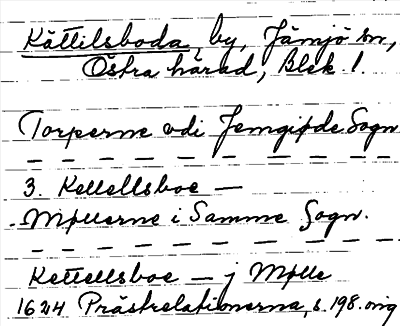 Kättilsboda, by, Jämjö sn,
Östra härad, Blek l.
Torperne udi Jemgiøde Sogn
— — — — — — — — —
3. Kettellsboe —
- Møllerne i Samme Sogn.
— — — — — — — — —
Kettellsboe — j Mølle
1624 Prästrelationerna, s. 198. orig